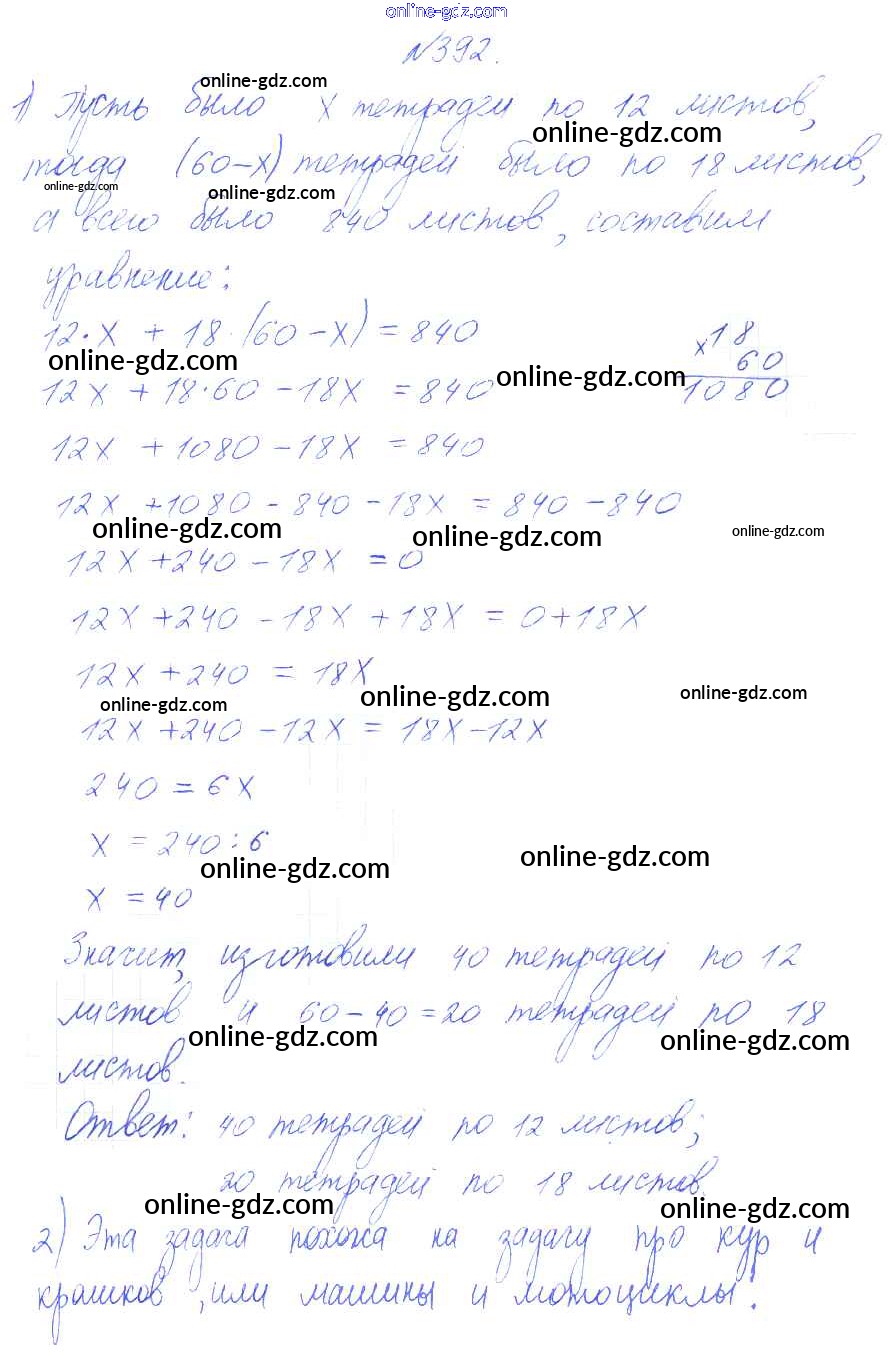 online-gdz.com
№392.
online-gdz.com
1) Пусть было x тетрадей по 12 листов,
online-gdz.com
тогда (60-x) тетрадей было по 18 листов,
online-gdz.com online-gdz.com
а всего было 840 листов, составим
уравнение:
12·x + 18·(60-x) = 840
×18
60
1080
online-gdz.com online-gdz.com
12x + 18·60 - 18x = 840
12x + 1080 - 18x = 840
12x + 1080 - 840 - 18x = 840 - 840
online-gdz.com online-gdz.com online-gdz.com
12x + 240 - 18x = 0
12x + 240 - 18x + 18x = 0 + 18x
12x + 240 = 18x
online-gdz.com online-gdz.com online-gdz.com
12x + 240 - 12x = 18x - 12x
240 = 6x
x = 240 : 6
online-gdz.com online-gdz.com
x = 40
Значит, изготовили 40 тетрадей по 12
листов и 60-40=20 тетрадей по 18
online-gdz.com online-gdz.com
листов.
Ответ: 40 тетрадей по 12 листов;
20 тетрадей по 18 листов.
online-gdz.com online-gdz.com
2) Эта задача похожа на задачу про кур и
кроликов, или машины и мотоциклы.